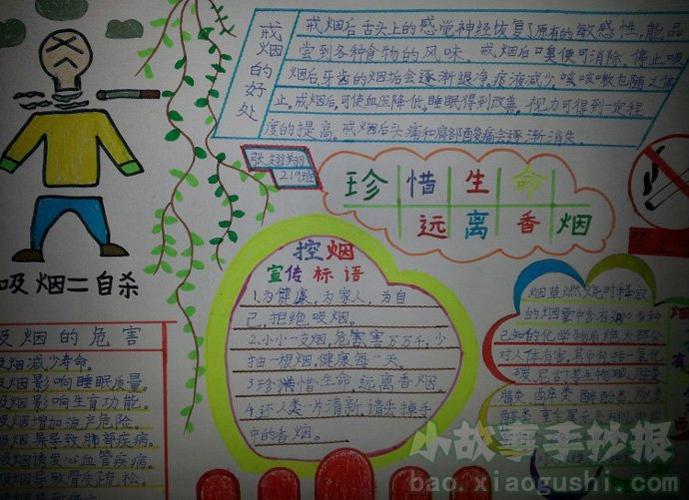 戒烟的好处
戒烟后舌头上的感觉神经恢复了原有的敏感性,能品
尝到各种食物的风味。戒烟后口臭便可消除。停止吸
烟后牙齿的烟垢会逐渐退净,痰液减少,咳咳嗽也随之停
止。戒烟后,可使血压降低,睡眠得到改善。视力可得到一定程
度的提高。戒烟后头痛和肩部酸痛会逐渐消失。
219班
珍惜生命
远离香烟
吸烟=自杀
控烟
宣传标语
1.为健康,为家人,为自
己,拒绝吸烟。
2.小小一支烟,危害害万万千,少
抽一根烟,健康每一天。
3.珍惜生命远离香烟
4.还人类一片清新,请丢掉手
中的香烟。
吸烟的危害
吸烟减少寿命。
吸烟影响睡眠质量。
吸烟影响生育功能。
吸烟增加流产危险。
吸烟易导致肺部疾病。
吸烟诱发心血管疾病。
吸烟导致骨质疏松。
烟草燃烧时释放
的烟雾中含有
已知的化学物质绝大部分
对人体有害,其中包括一氧化
碳、尼古丁等生物碱、胺类
小故事手抄报
bao.xiaogushi.com